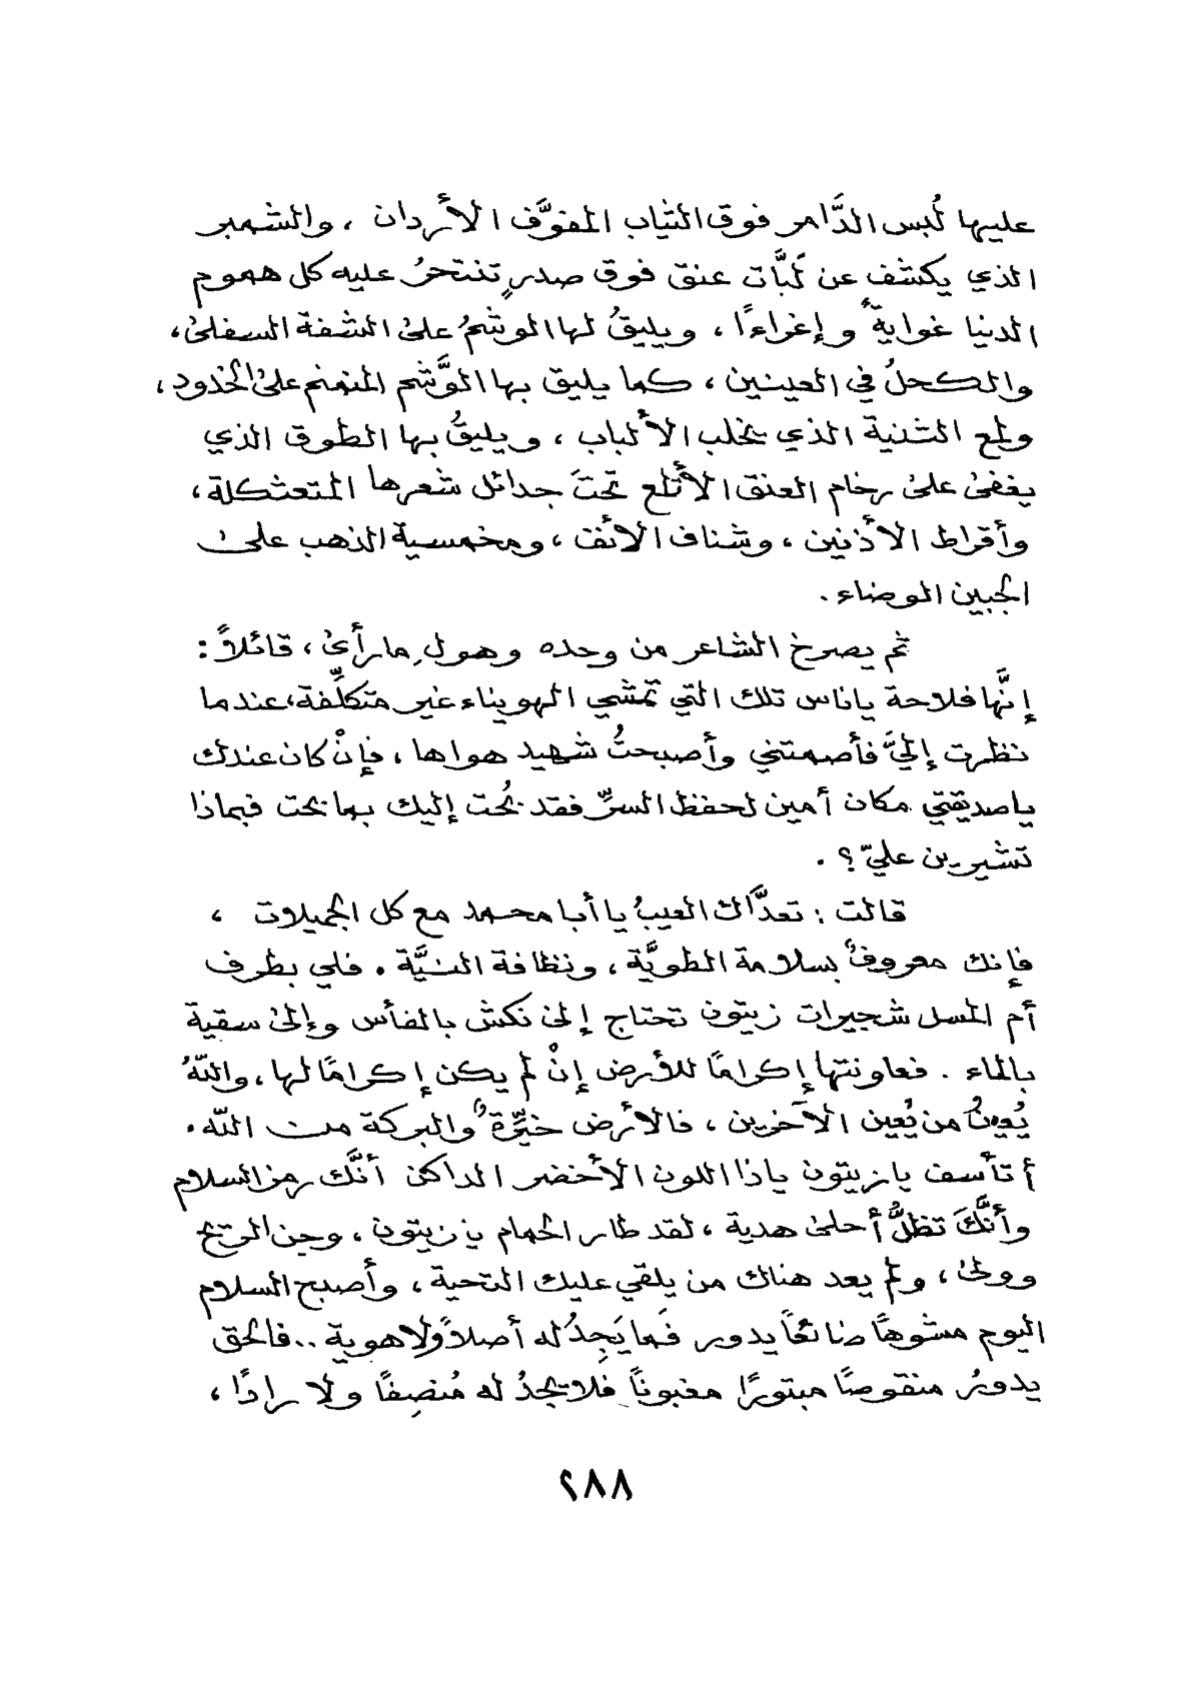 عليها لُبس الدَّامر فوق الثياب المفوَّف الأردان ، والشمبر
الذي يكشف عن لَبَّات عنق فوق صدرٍ تنتحرُ عليه كل هموم
الدنيا غوايةً وإغراءًا ، ويليقُ لها الوشمُ على الشفة السفلى ،
والكحلُ في العينين ، كما يليق بها الوَّشم المنمنم على الخدود ،
ولمع الثنية الذي يخلب الألباب ، ويليقُ بها الطوق الذي
يغفى على رخام العنق الأتلع تحتَ جدائل شعرها المتعثكلة ،
وأقراط الأذنين ، وشناف الأنف ، ومخمسية الذهب على
الجبين الوضاء .
ثم يصرخ الشاعر من وجده وهولِ مارأى ، قائلاً :
إنَّها فلاحة ياناس تلك التي تمشي الهويناء غير متكلِّفة ، عندما
نظرت إليَّ فأصمتني وأصبحتُ شهيد هواها ، فإنْ كان عندك
ياصديقتي مكان أمين لحفظ السرِّ فقد بُحت إليك بما بحت فبماذا
تشيرين عليّ ؟ .
قالت : تعدَّاك العيبُ يا أبا محمد مع كل الجميلات ،
فإنك معروفٌ بسلامة الطويَّة ، ونظافة النيَّة . فلي بطرف
أم المسل شجيرات زيتون تحتاج إلى نكش بالفأس وإلى سقية
بالماء . فعاونتها إكرامًا للأرض إنْ لم يكن إكرامًا لها ، واللّهُ
يُعينُ من يُعين الآخرين ، فالأرض خيِّرةٌ والبركة من اللّه .
أتأسف يا زيتون ياذا اللون الأخضر الداكن أنَّك رمز السلام
وأنَّكَ تظلُّ أحلى هدية ، لقد طار الحمام يا زيتون ، وجن المريخ
وولى ، ولم يعد هناك من يلقي عليك التحية ، وأصبح السلام
اليوم مشوهًا ضائعًا يدور فَما يَجِدُ له أصلاً ولا هوية .. فالحق
يدورُ منقوصًا مبتورًا مغبوناً فلا يجدُ له مُنصِفًا ولا رادًا ،
٢٨٨